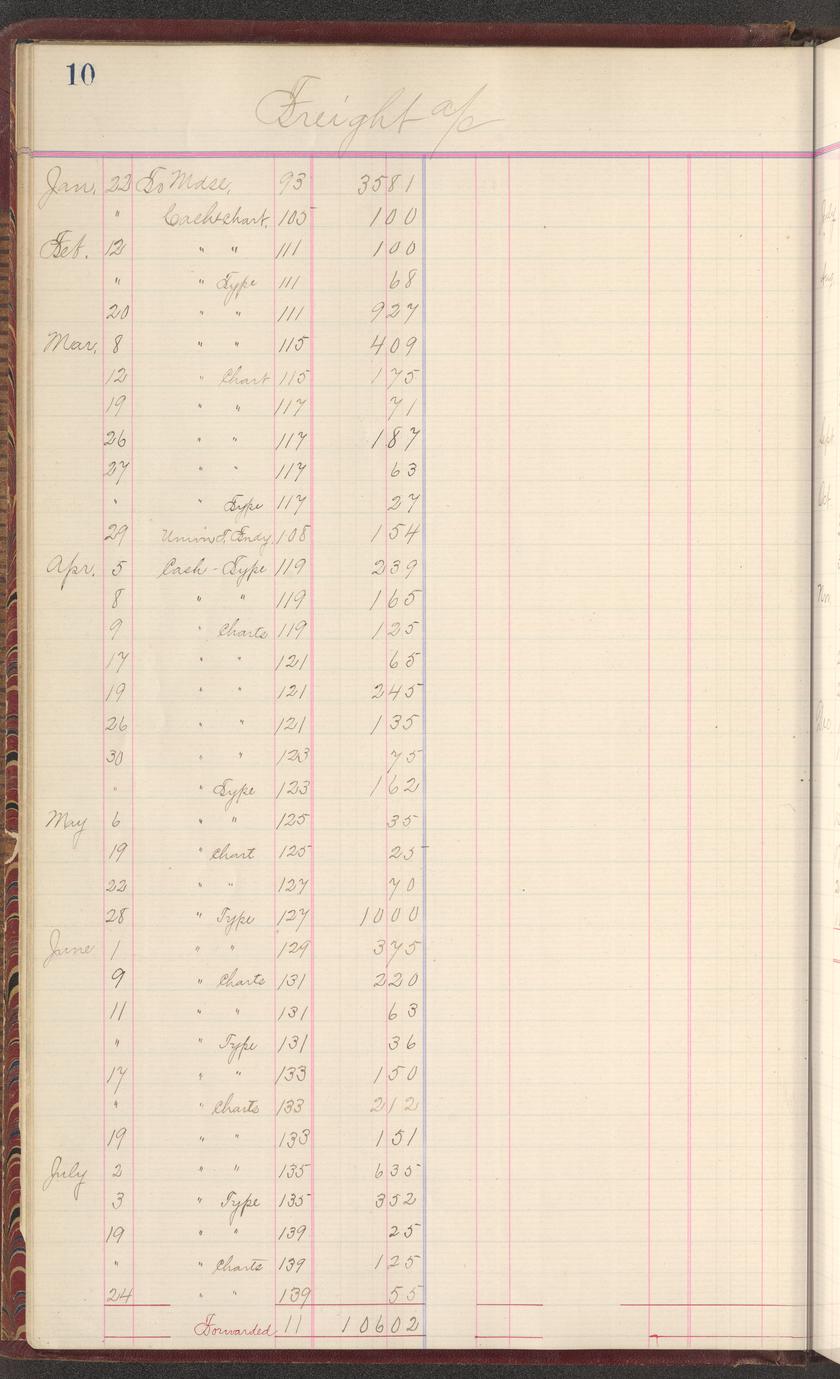 10
Freight a/c
Jan. 22 To Mdse. 93 3581
" Cash chart. 105 100
Feb. 12 " " 111 100
" " Type 111 68
20 " " 111 927
Mar. 8 " " 115 409
12 " Chart 115 175
19 " " 117 71
26 " " 117 187
27 " " 117 63
" " Type 117 27
29 Union 108 154
Apr. 5 Cash - Type 119 239
8 " " 119 165
9 " Charts 119 125
17 " " 121 65
19 " " 121 245
26 " " 121 135
30 " " 123 75
" " Type 123 162
May 6 " " 125 35
19 " Chart 125 25
22 " " 127 70
28 " Type 127 1000
June 1 " " 129 375
9 " Charts 131 220
11 " " 131 63
" " Type 131 36
17 " " 133 150
" " Charts 133 212
19 " " 133 151
July 2 " " 135 635
3 " Type 135 352
19 " " 139 25
" " Charts 139 125
24 " " 139 55
Forwarded 11 10602